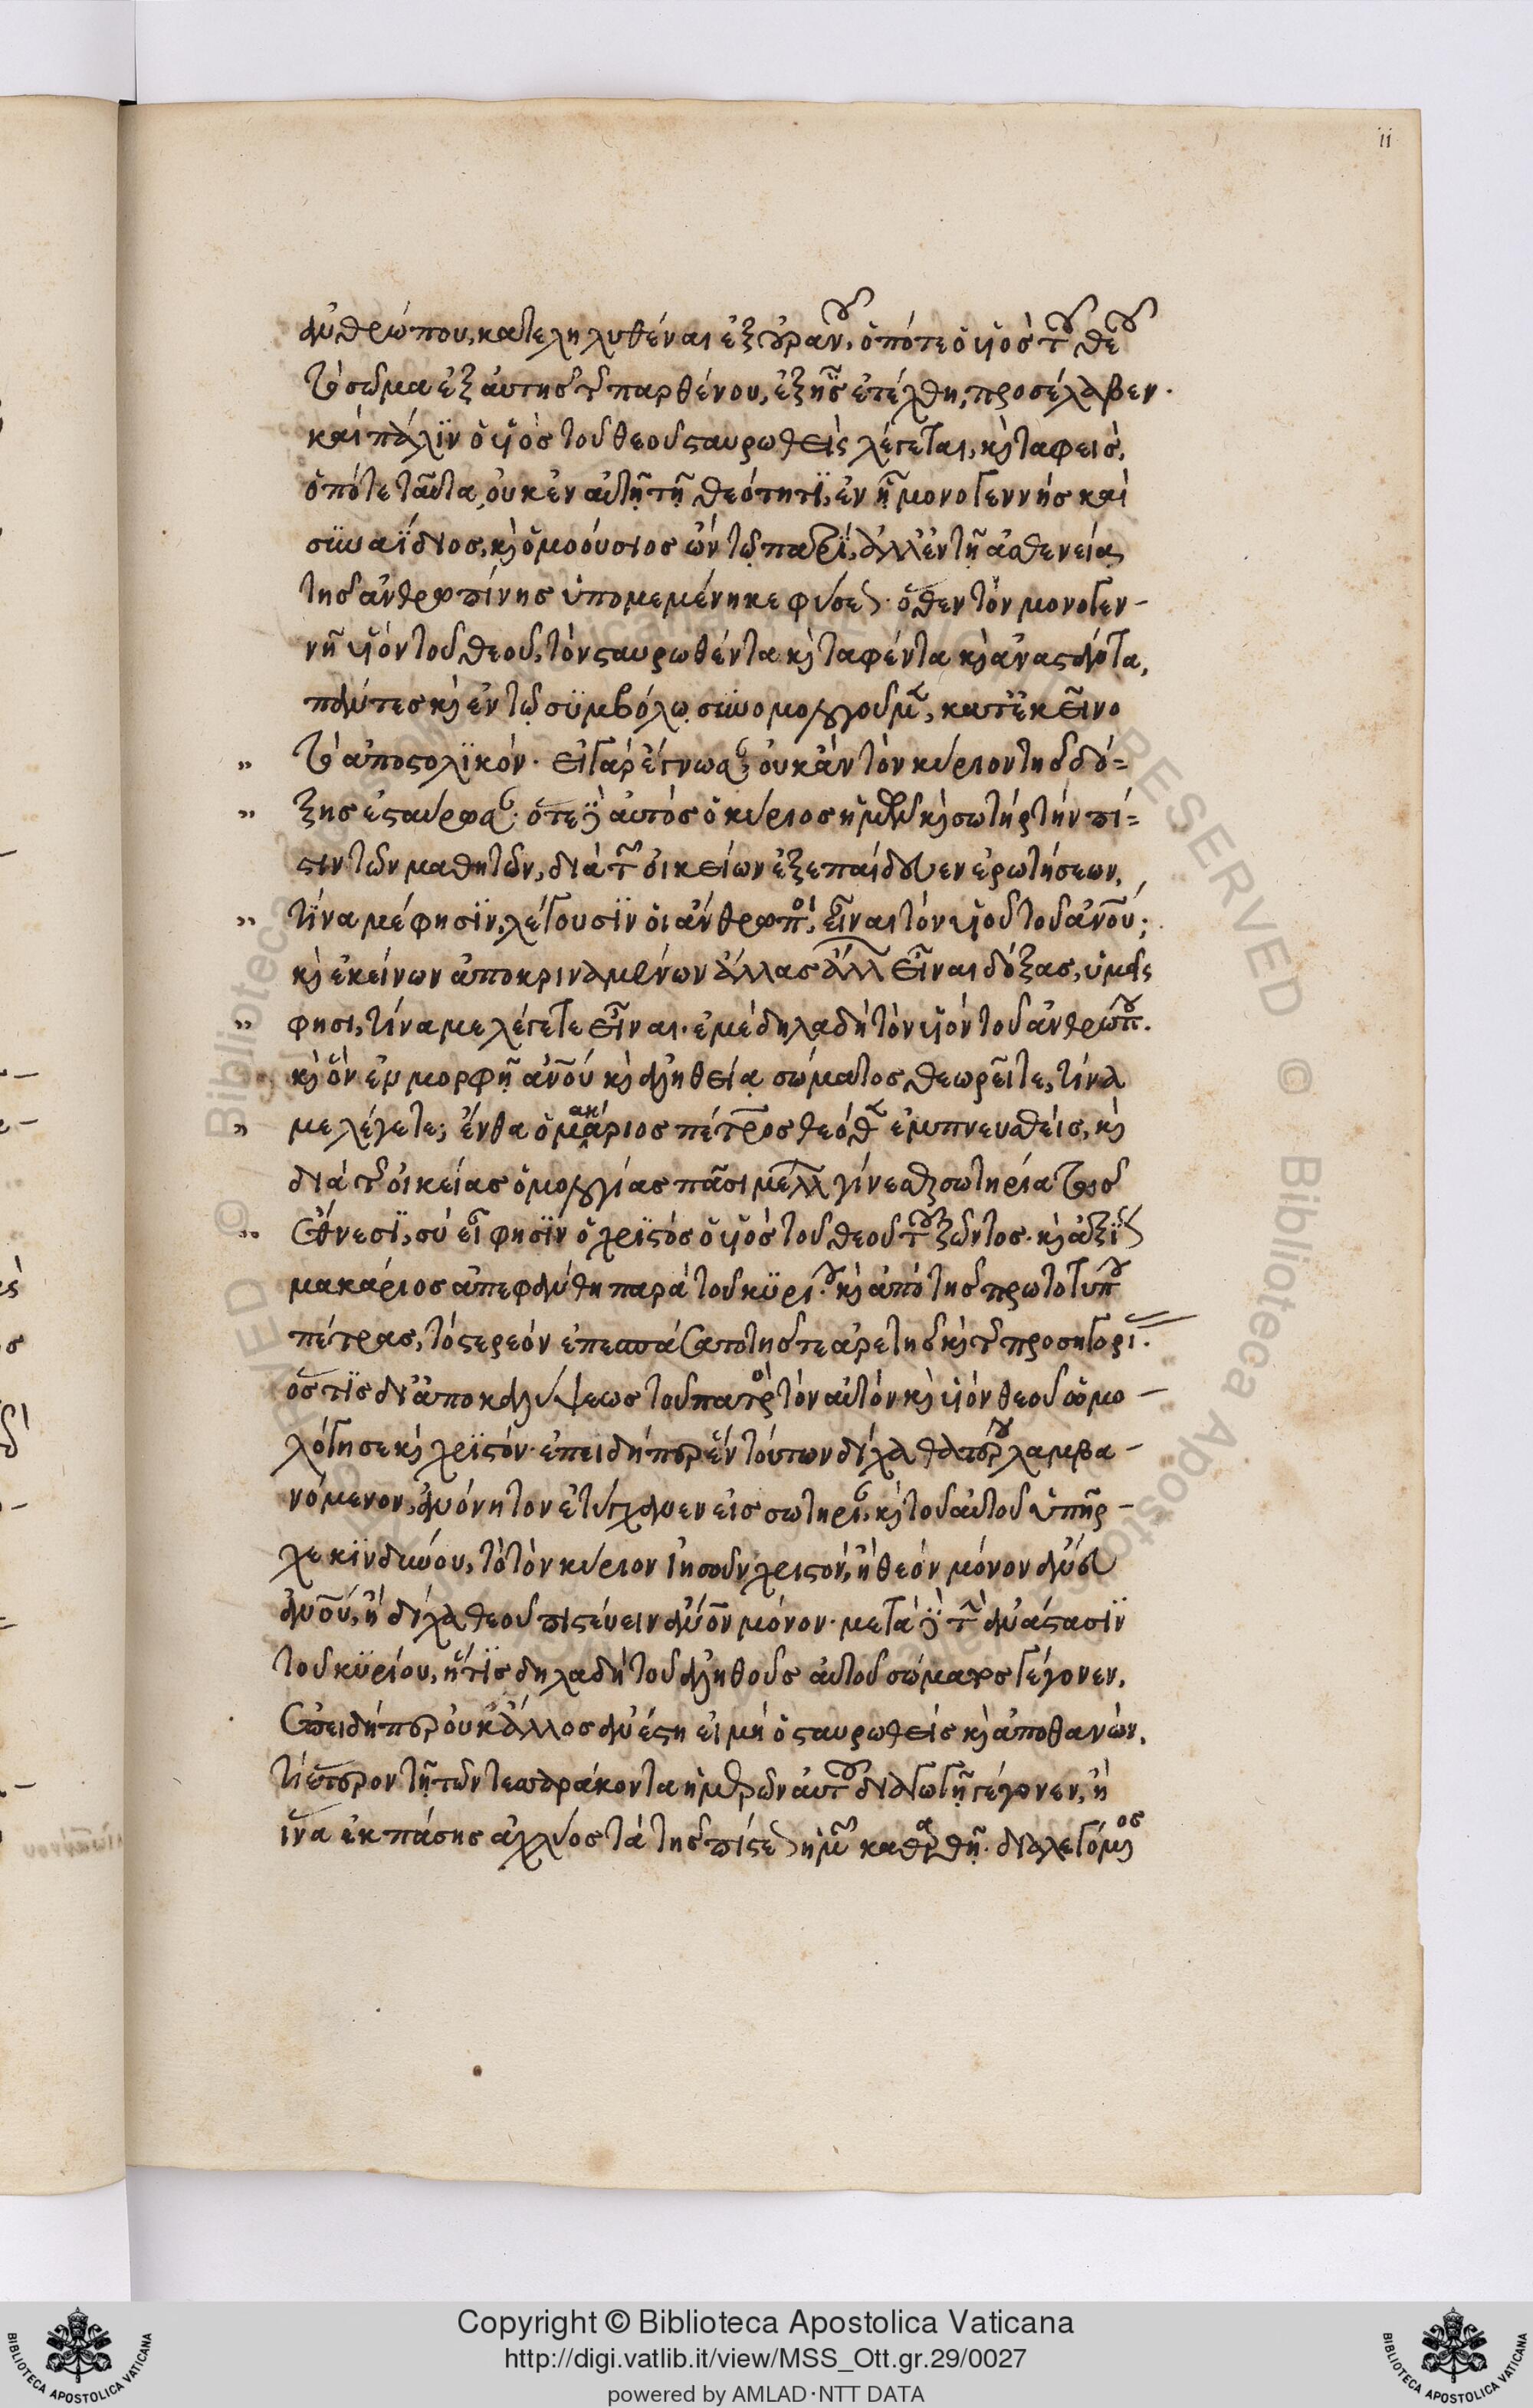 11
ἀνθρώπου, κατεληλυθέναι ἐξ οὐρανοῦ, ὁπότε ὁ υἱὸς τοῦ θεοῦ
τὸ σῶμα ἐξ αὐτῆς τῆς παρθένου, ἐξ ἧς ἐτέχθη, προσέλαβεν.
καὶ πάλϊν ὁ υἱὸς τοῦ θεοῦ σταυρωθεὶς λέγεται, καὶ ταφεὶς,
ὁπότε ταῦτα, οὐκ ἐν αὐτῇ τῇ θεότητϊ, ἐν ᾗ μονογεννὴς καὶ
συναΐδιος, καὶ ὁμοούσιος ὢν τῷ πατρὶ, ἀλλ' ἐν τῇ ἀσθενείᾳ
τῆς ἀνθρωπίνης ὑπομεμένηκε φύσεως. ὅθεν τὸν μονογεν-
νῆ υἱὸν τοῦ θεοῦ, τὸν σταυρωθέντα καὶ ταφέντα καὶ ἀναστάντα,
πάντες καὶ ἐν τῷ συμβόλῳ συνομολογοῦμεν, κατ' ἐκεῖνο
„ τὸ ἀποστολϊκόν. εἰ γὰρ ἔγνωσαν, οὐκ ἂν τὸν κύριον τῆς δό=
„ ξης ἐσταύρωσαν. ὅτε δὲ αὐτὸς ὁ κύριος ἡμῶν καὶ σωτὴρ τὴν πί=
στιν τῶν μαθητῶν, διὰ τῶν οἰκείων ἐξεπαίδευεν ἐρωτήσεων,
„ τίνα μέ φησϊν, λέγουσϊν οἱ ἄνθρωποι, εἶναι τὸν υἱὸν τοῦ ἀνου;
κἀκείνων ἀποκριναμένων ἄλλας ἄλλων εἶναι δόξας, ὑμεῖς
„ φησι, τίνα με λέγετε εἶναι. ἐμὲ δηλαδὴ τὸν υἱὸν τοῦ ἀνθρώπου.
καὶ ὃν ἐμ μορφῇ ἀνου καὶ ἀληθείᾳ σώματος θεωρεῖτε, τίνα
„ με λέγετε; ἔνθα ὁ μακάριος πέτρος θεόθεν ἐμπνευσθεὶς, καὶ
διὰ τῆς οἰκείας ὁμολογίας πᾶσι μέλλων γίνεσθαι σωτηρία τοῖς
„ ἔθνεσϊ, σὺ εἶ φησϊν ὁ χρϊστὸς ὁ υἱὸς τοῦ θεοῦ τοῦ ζῶντος. καὶ ἀξίως
μακάριος ἀπεφάνθη παρὰ τοῦ κυρίου. καὶ ἀπὸ τῆς πρωτοτύπου
πέτρας, τὸ στερεὸν ἐπεσπάσατο τῆς τε ἀρετῆς καὶ τῆς προσηγορί.
ὅστϊς δι' ἀποκαλύψεως τοῦ πατρὸς τὸν αὐτὸν καὶ υἱὸν θεοῦ ὡμο-
λόγησε καὶ χρϊστόν. ἐπειδήπερ ἓν τούτων δίχα θατέρου λαμβα-
νόμενον, ἀνόνητον ἐτύγχανεν εἰς σωτηρίαν, καὶ τοῦ αὐτοῦ ὑπῆρ-
χε κϊνδύνου, τὸ τὸν κύριον ἰησοῦν χριστὸν, ἢ θεὸν μόνον ἄνευ
ἀνου, ἢ δίχα θεοῦ πιστεύειν ἀνον μόνον. μετὰ δὲ τὴν ἀνάστασϊν
τοῦ κυρίου, ἥτϊς δηλαδὴ τοῦ ἀληθοῦς αὐτοῦ σώματος γέγονεν,
ἐπειδήπερ οὐκ ἄλλος ἀνέστη εἰ μὴ ὁ σταυρωθεὶς καὶ ἀποθανών,
τί ἕτερον τῇ τῶν τεσσαράκοντα ἡμερῶν αὐτοῦ διαγωγῇ γέγονεν, ἢ
ἵνα ἐκ πάσης ἀχλύος τὰ τῆς πίστεως ἡμῶν καθαρθῇ. διαλεγόμενος
Copyright © Biblioteca Apostolica Vaticana
http://digi.vatlib.it/view/MSS_Ott.gr.29/0027
powered by AMLAD·NTT DATA